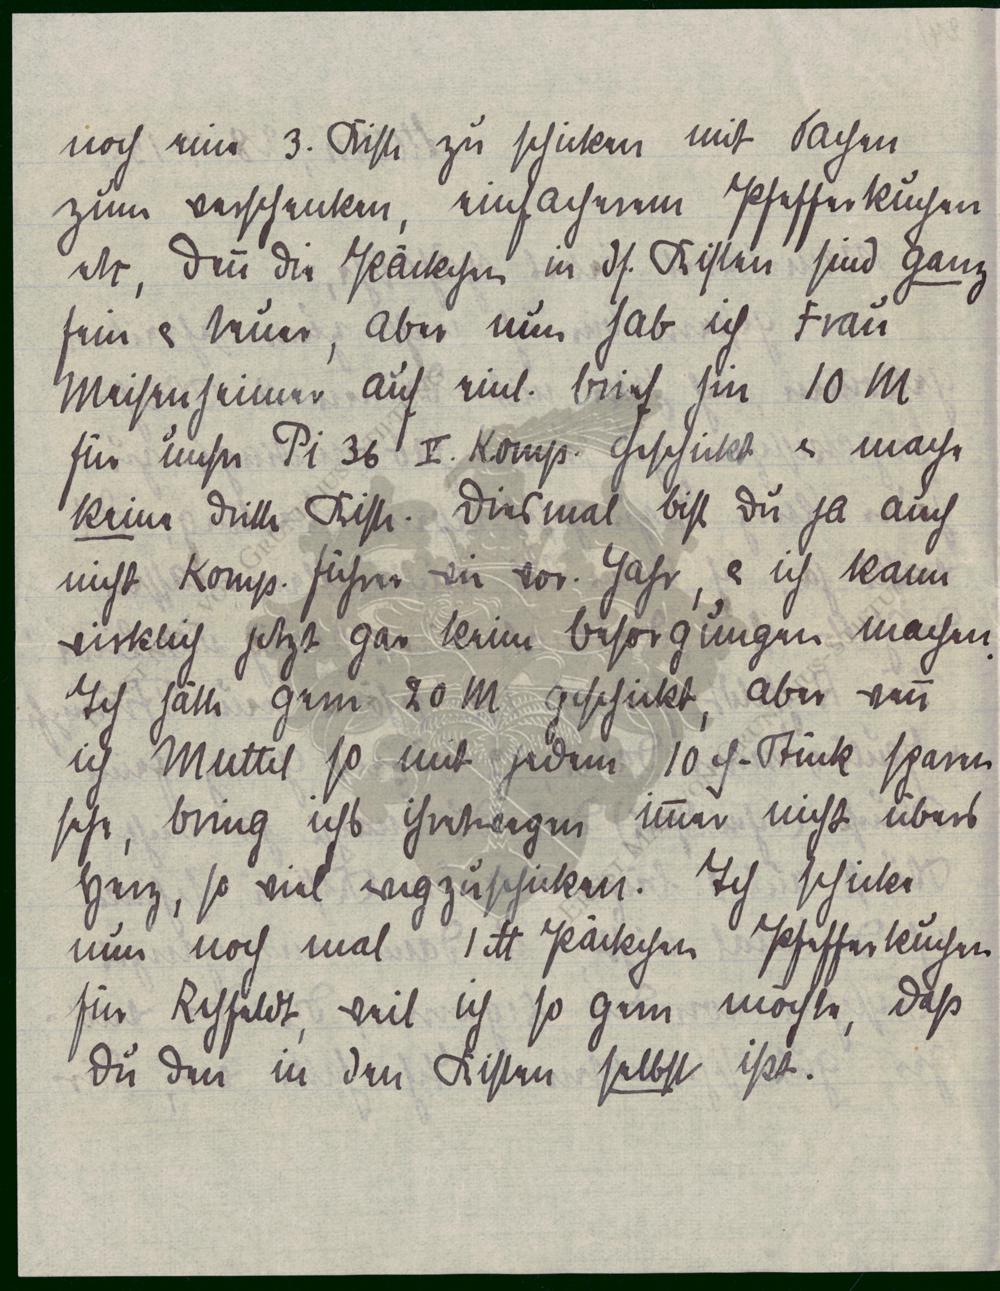 noch eine 3. Kiste zu schicken mit Sachen
zum verschenken, einfacherem Pfefferkuchen
etc, deñ die Päckchen in ds. Kisten sind ganz
fein & teuer, aber nun hab ich Frau
Meisenheimer auf einl. brief hin 10 M
für unsre Pi 36 II. Komp. geschickt & mache
keine dritte Kiste. Diesmal bist du ja auch
nicht Komp. führer wie vor. Jahr, & ich kann
wirklich jetzt gar keine besorgungen machen.
Ich hätte gern 20 M geschickt, aber weñ
ich Muttel so mit jedem 10 ₰-Stück sparen
sehe, bring ichs ihretwegen im̃er nicht übers
Herz, so viel wegzuschicken. Ich schicke
nun noch mal 1 ℔ Päckchen Pfefferkuchen
für Rehfeldt, weil ich so gern möchte, daß
du den in den Kisten selbst ißt.